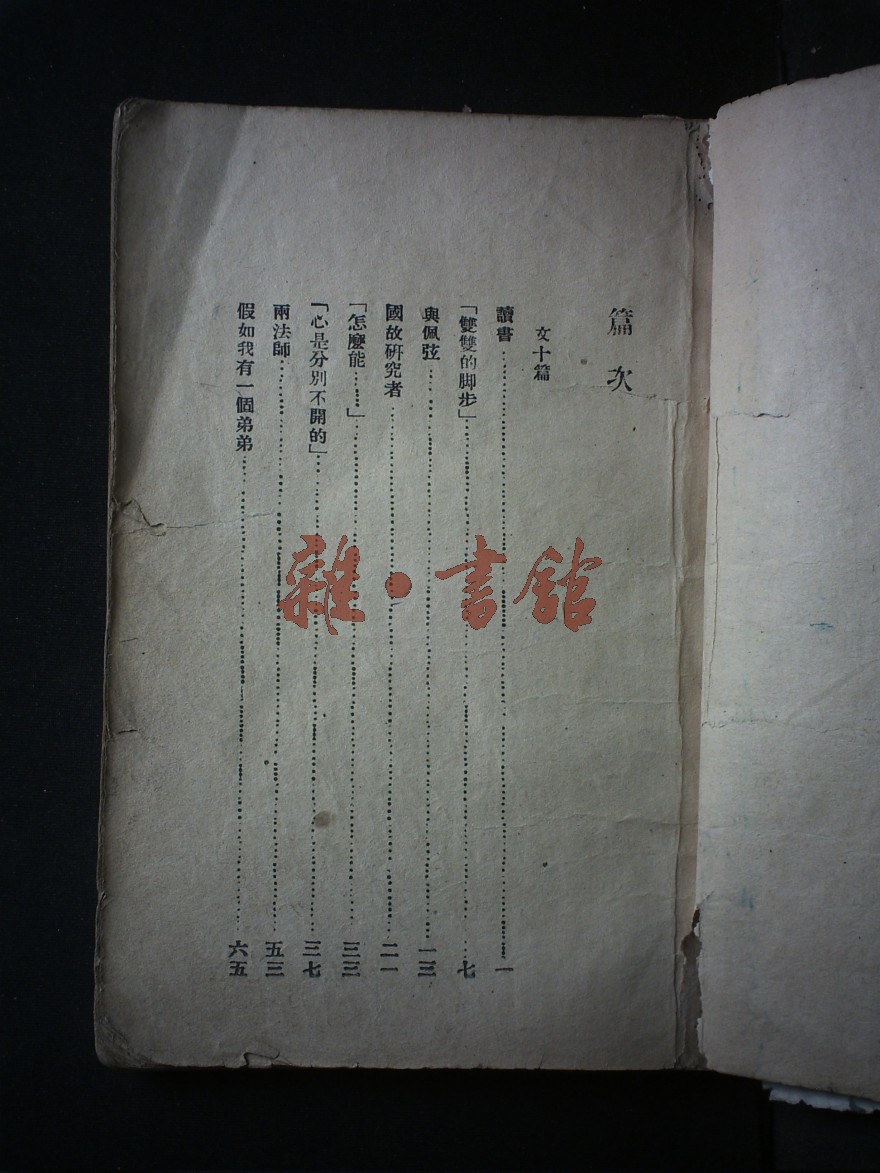 篇次
文十篇
讀書……一
「雙雙的脚步」……七
與佩弦……一三
國故研究者……二一
「怎麽能……」……三三
「心是分別不開的」……三七
兩法師……五三
假如我有一個弟弟……六五
雜·書館